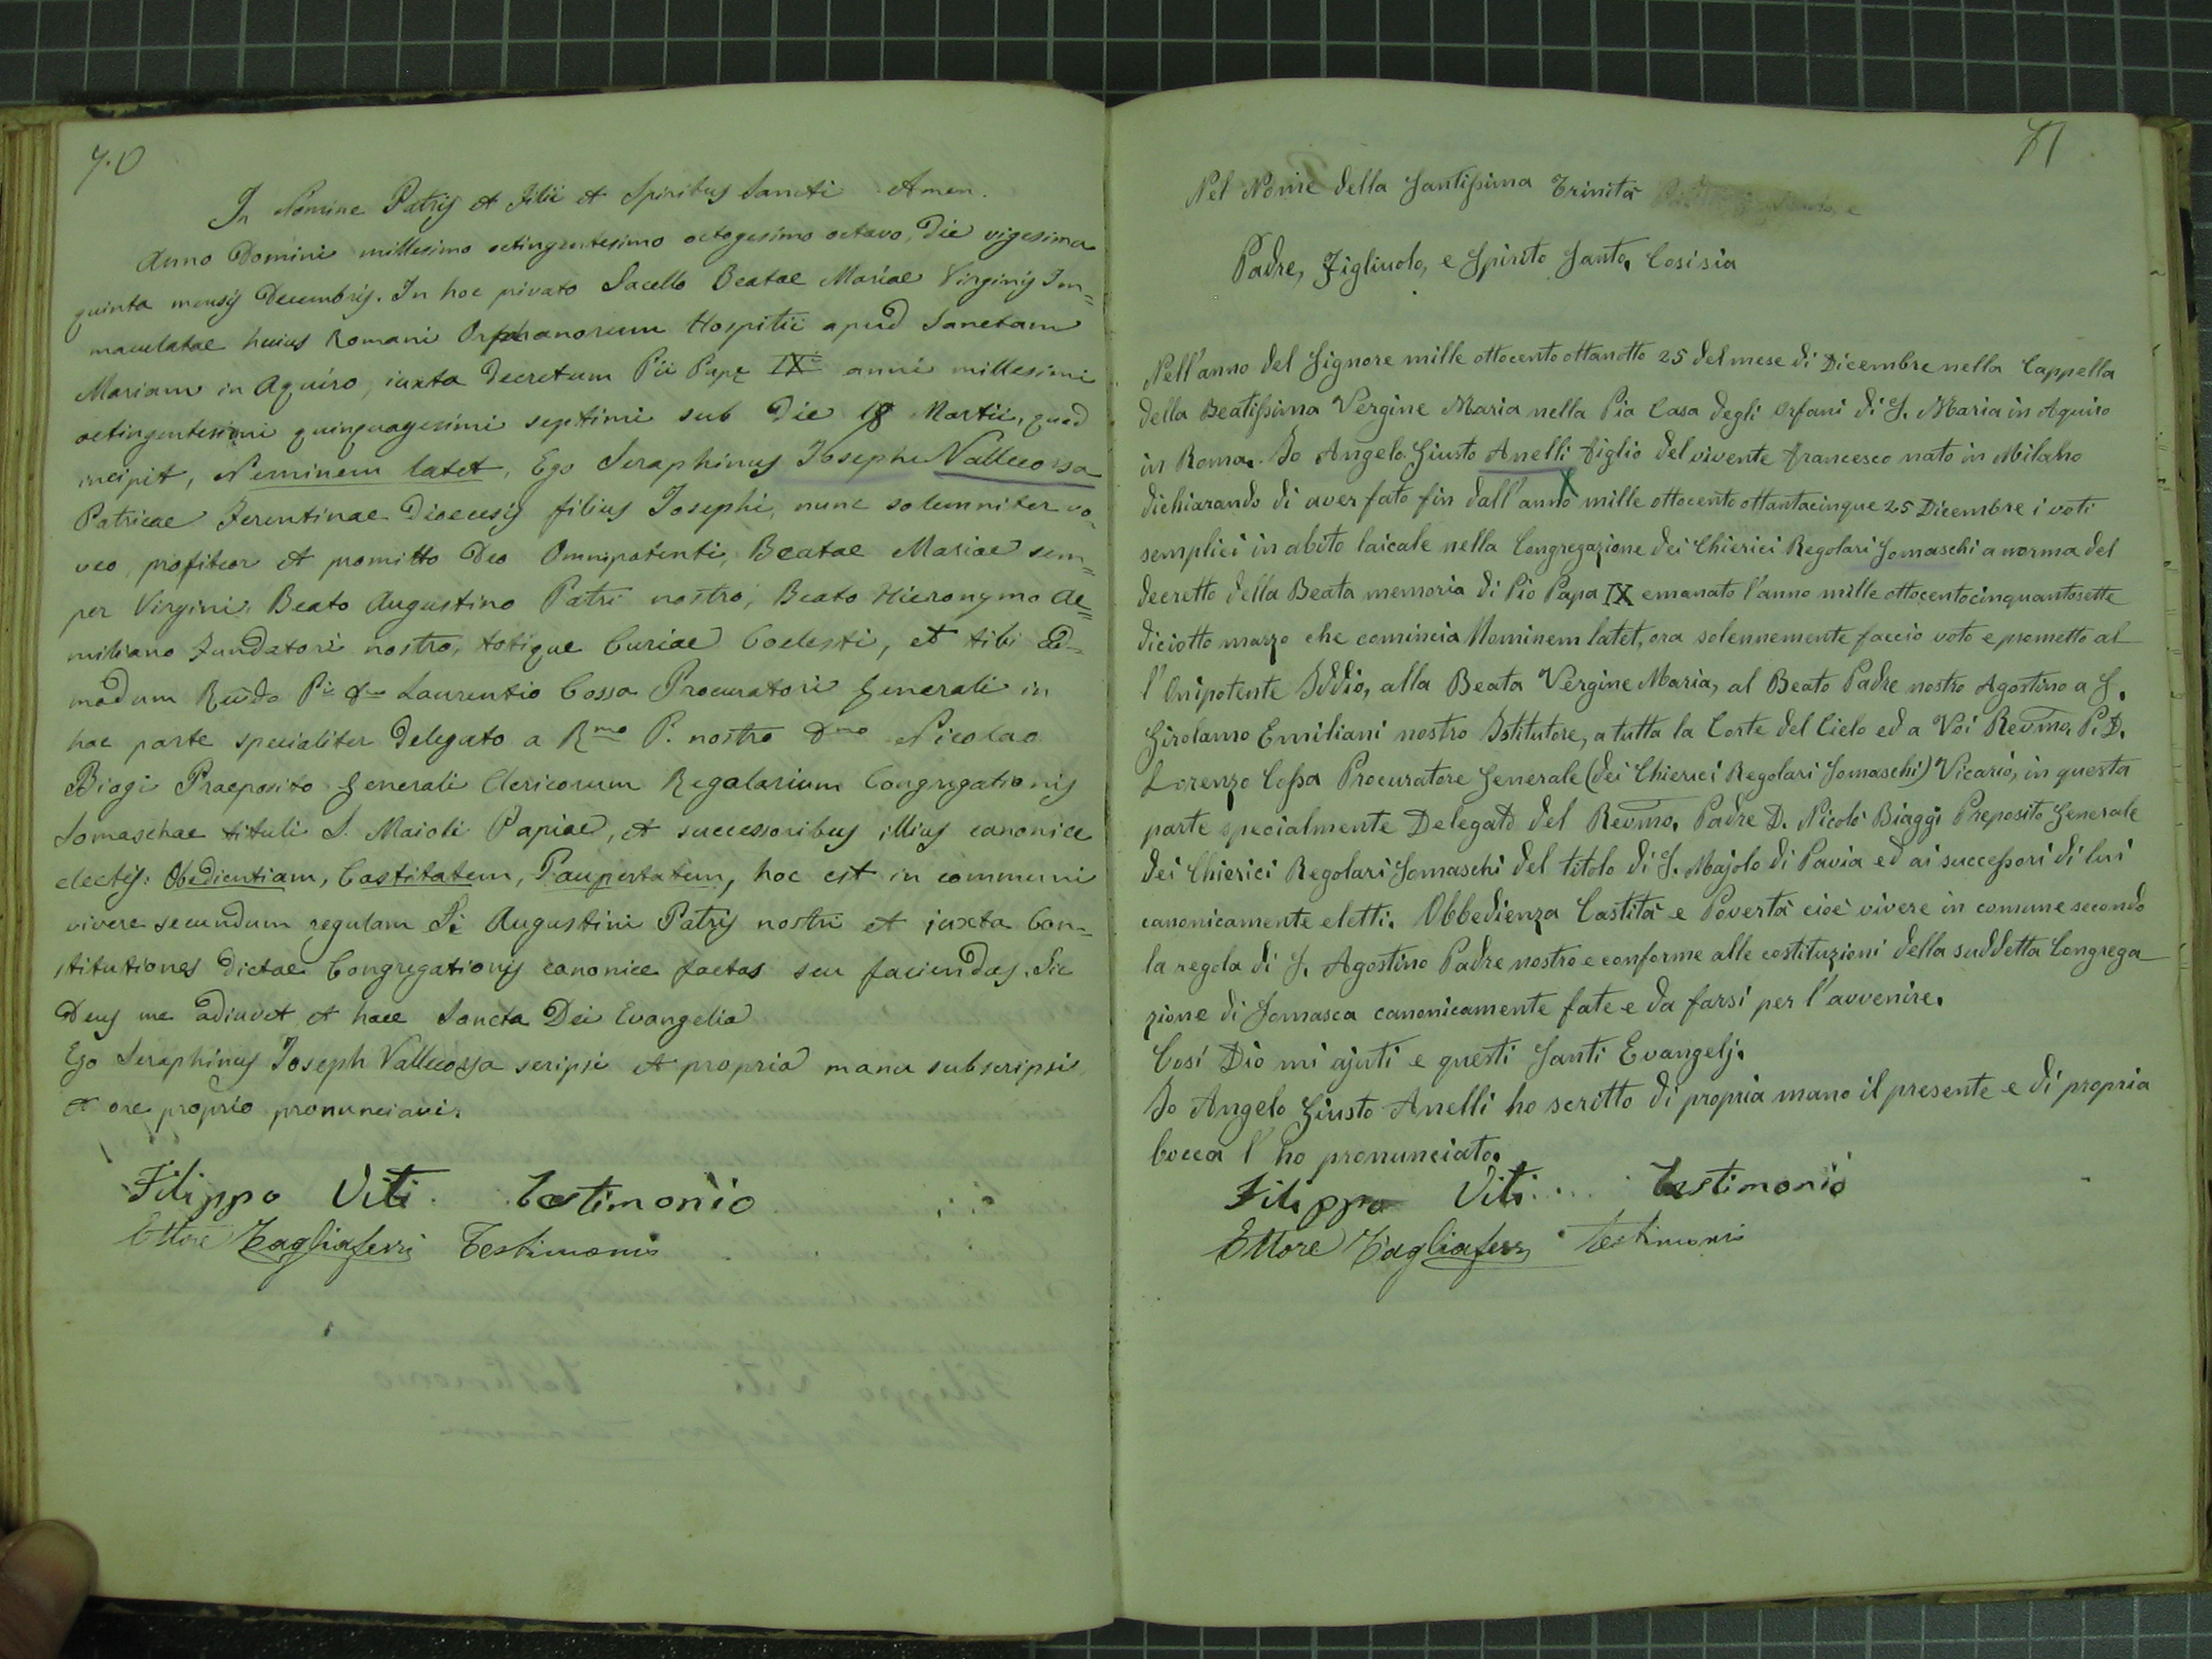 70
In Nomine Patris et Filii et Spiritus Sancti Amen.
Anno Domini millesimo octingentesimo octogesimo octavo, die vigesima
quinta mensis Decembris. In hoc privato Sacello Beatae Mariae Virginis Im=
maculatae huius Romani Orphanorum Hospitii apud Sanctam
Mariam in Aquiro, iuxta decretum Pii Papę IX anni millesimi
octingentesimi quinquagesimi septimi sub die 18 Martii, quod
incipit, Neminem latet, Ego Seraphinus Joseph Vallecorsa
Patricae Ferentinae Dioecesis filius Josephi, nunc solemniter vo-
veo, profiteor et promitto Deo Omnipotenti, Beatae Mariae sem=
per Virgini, Beato Augustino Patri nostro, Beato Hieronymo Ae=
miliano Fundatori nostro, totique Curiae Coelesti, et tibi ad=
modum Rẽudo Pi Dno Laurentio Cossa Procuratori Generali in
hac parte specialiter delegato a Rmo P. nostro Dno Nicolao
Biagi Praeposito Generali Clericorum Regolarium Congregationis
Somaschae tituli S. Maioli Papiae, et successoribus illius canonice
electis: Obedientiam, Castitatem, Paupertatem, hoc est in communi
vivere secundum regulam Si Augustini Patris nostri et iuxta Con=
stitutiones dictae Congregationis canonice factas seu faciendas. Sic
Deus me adiuvet et haec Sancta Dei Evangelia
Ego Seraphinus Joseph Vallecorsa scripsi et propria manu subscripsi
et ore proprio pronunciavi.
Filippo Viti. Testimonio
Ettore Tagliaferri Testimonio
71
Nel Nome della Santissima Trinità
Padre, Figliuolo, e Spirito Santo. Cosisia
Nell'anno del Signore mille ottocento ottanotto 25 del mese di Dicembre nella Cappella
della Beatissima Vergine Maria nella Pia Casa degli Orfani di S. Maria in Aquiro
in Roma. Io Angelo Giusto Anelli figlio del vivente francesco nato in Milano
dichiarando di aver fato fin dall'anno mille ottocento ottantacinque 25 Dicembre i voti
semplici in abito laicale nella Congregazione dei Chierici Regolari Somaschi a norma del
decretto della Beata memoria di Pio Papa IX emanato l'anno mille ottocentocinquantosette
diciotto marzo che comincia Neminem latet, ora solennemente faccio voto e prometto al
l'Onipotente Iddio, alla Beata Vergine Maria, al Beato Padre nostro Agostino a S.
Girolamo Emiliani nostro Istitutore, a tutta la Corte del Cielo ed a Voi Revmo. P. D.
Lorenzo Cossa Procuratore Generale (dei Chierici Regolari Somaschi) Vicario, in questa
parte specialmente Delegato del Revmo. Padre D. Nicolò Biaggi Preposito Generale
dei Chierici Regolari Somaschi del titolo di S. Majolo di Pavia ed ai successori di lui
canonicamente eletti. Obbedienza Castità e Povertà cioè vivere in comune secondo
la regola di S. Agostino Padre nostro e conforme alle costituzioni della suddetta Congrega
zione di Somasca canonicamente fate e da farsi per l'avvenire.
Così Dio mi ajuti e questi Santi Evangelj.
Io Angelo Giusto Anelli ho scritto di propria mano il presente e di propria
bocca l'ho pronunciato.
Filippo Viti... Testimonio
Ettore Tagliaferri Testimonio